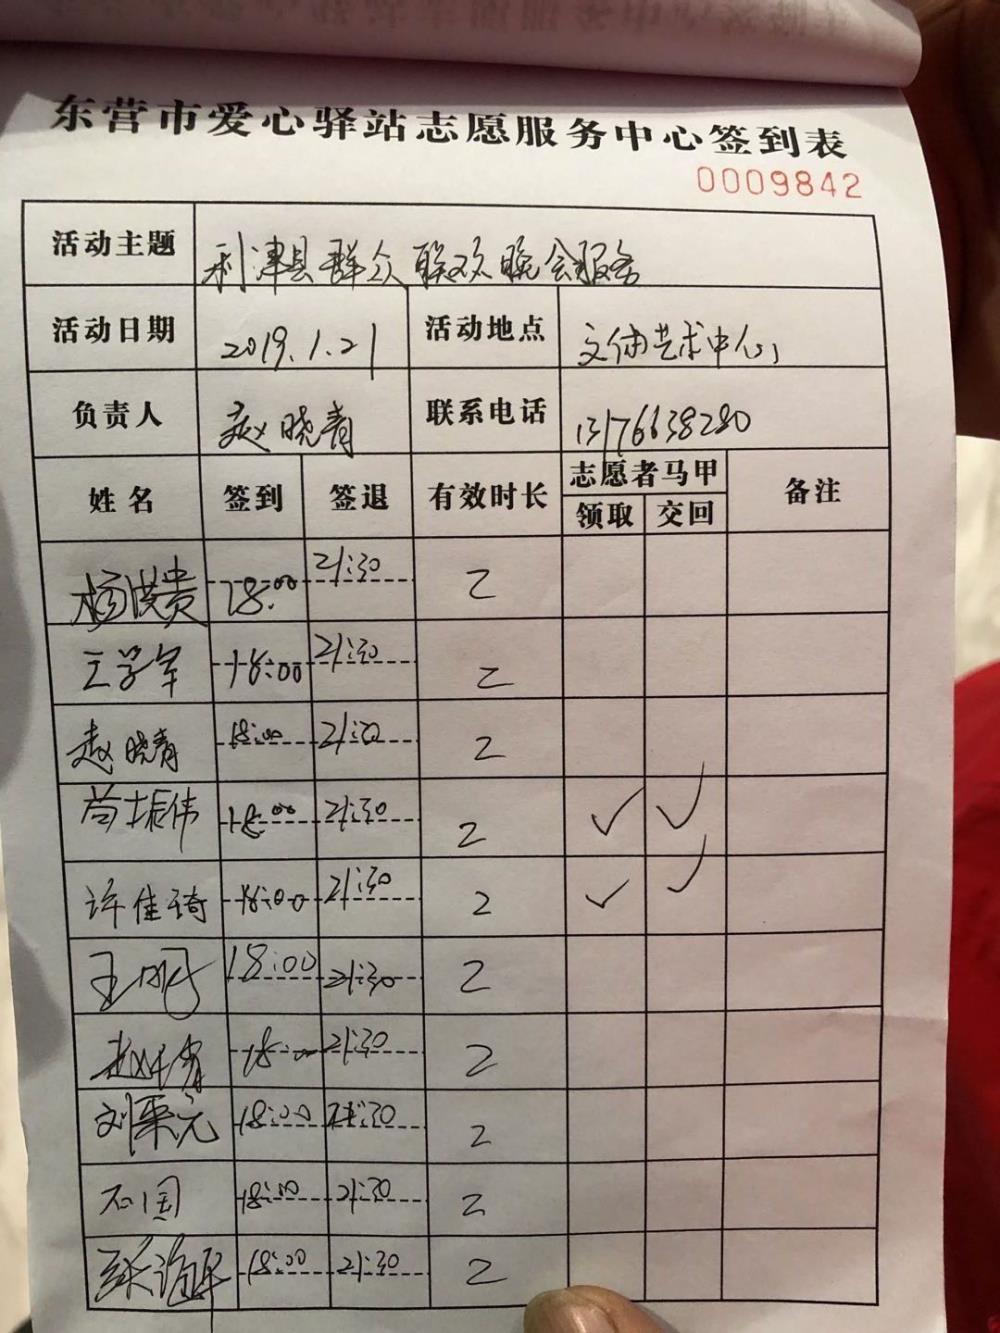 东营市爱心驿站志愿服务中心签到表
0009842
活动主题 利津县群众联欢晚会服务
活动日期 2019.1.21 活动地点 文体艺术中心
负责人 赵晓青 联系电话 13176638280
姓名 签到 签退 有效时长 志愿者马甲 备注
领取 交回
杨洪贵 18:00 21:30 2
王学军 18:00 21:30 2
赵晓青 18:00 21:30 2
苟振伟 18:00 21:30 2 ✓ ✓
许佳琦 18:00 21:30 2 ✓ ✓
王 18:00 21:30 2
赵 18:00 21:30 2
刘 元 18:00 21:30 2
石国 18:00 21:30 2
18:00 21:30 2